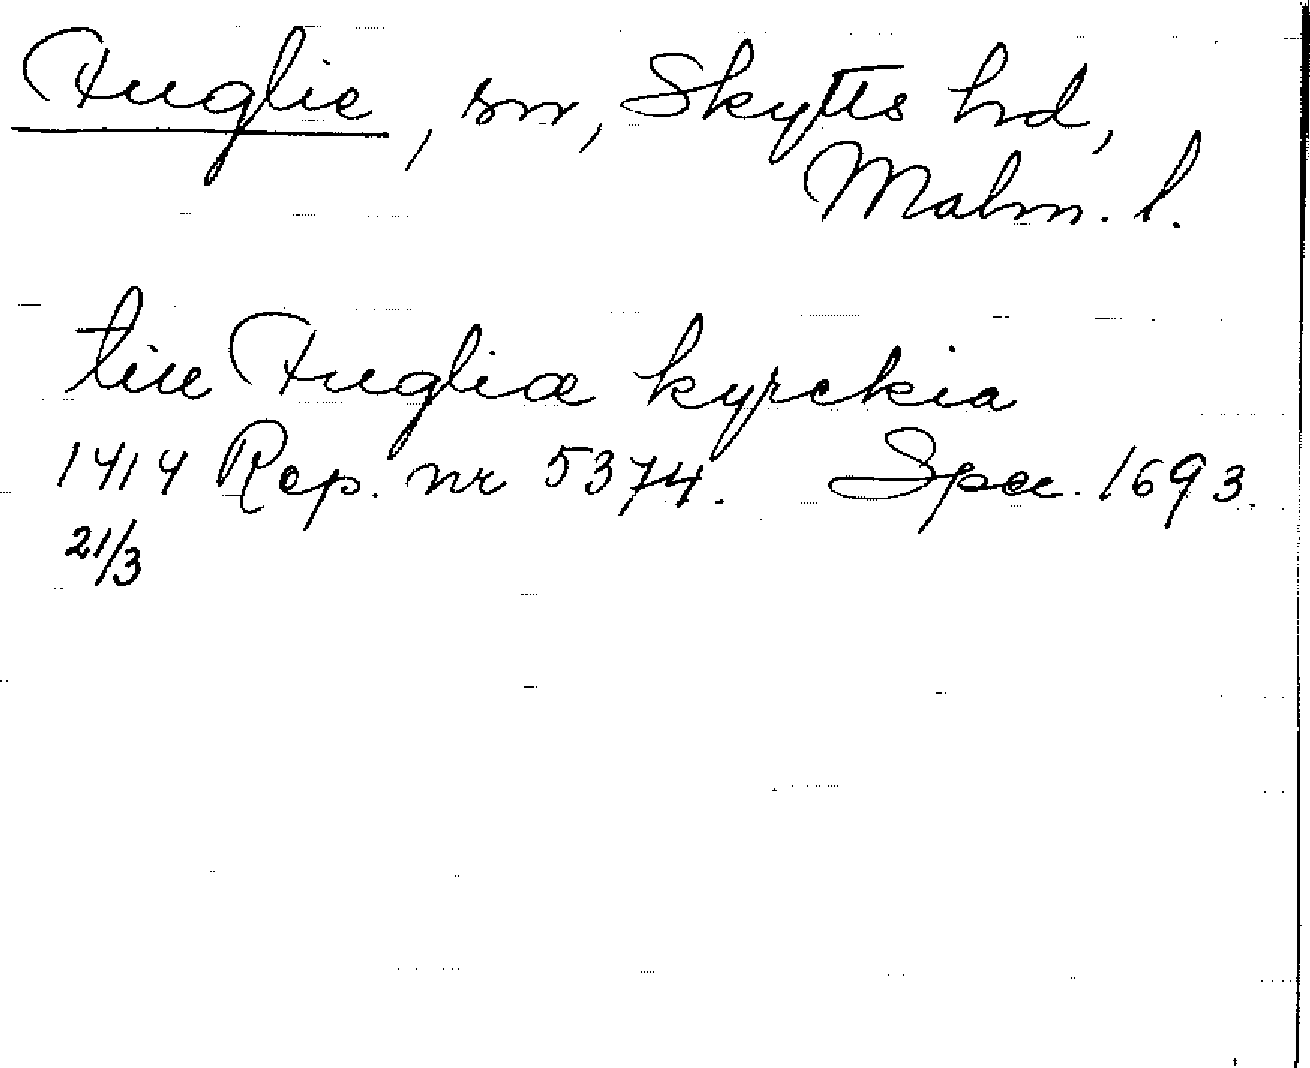 Fuglie, sn, Skytts hd,
Malm. l.
till Fugliæ kyrckia
1414 Rep. nr 5374. Spec. 1693.
21/3